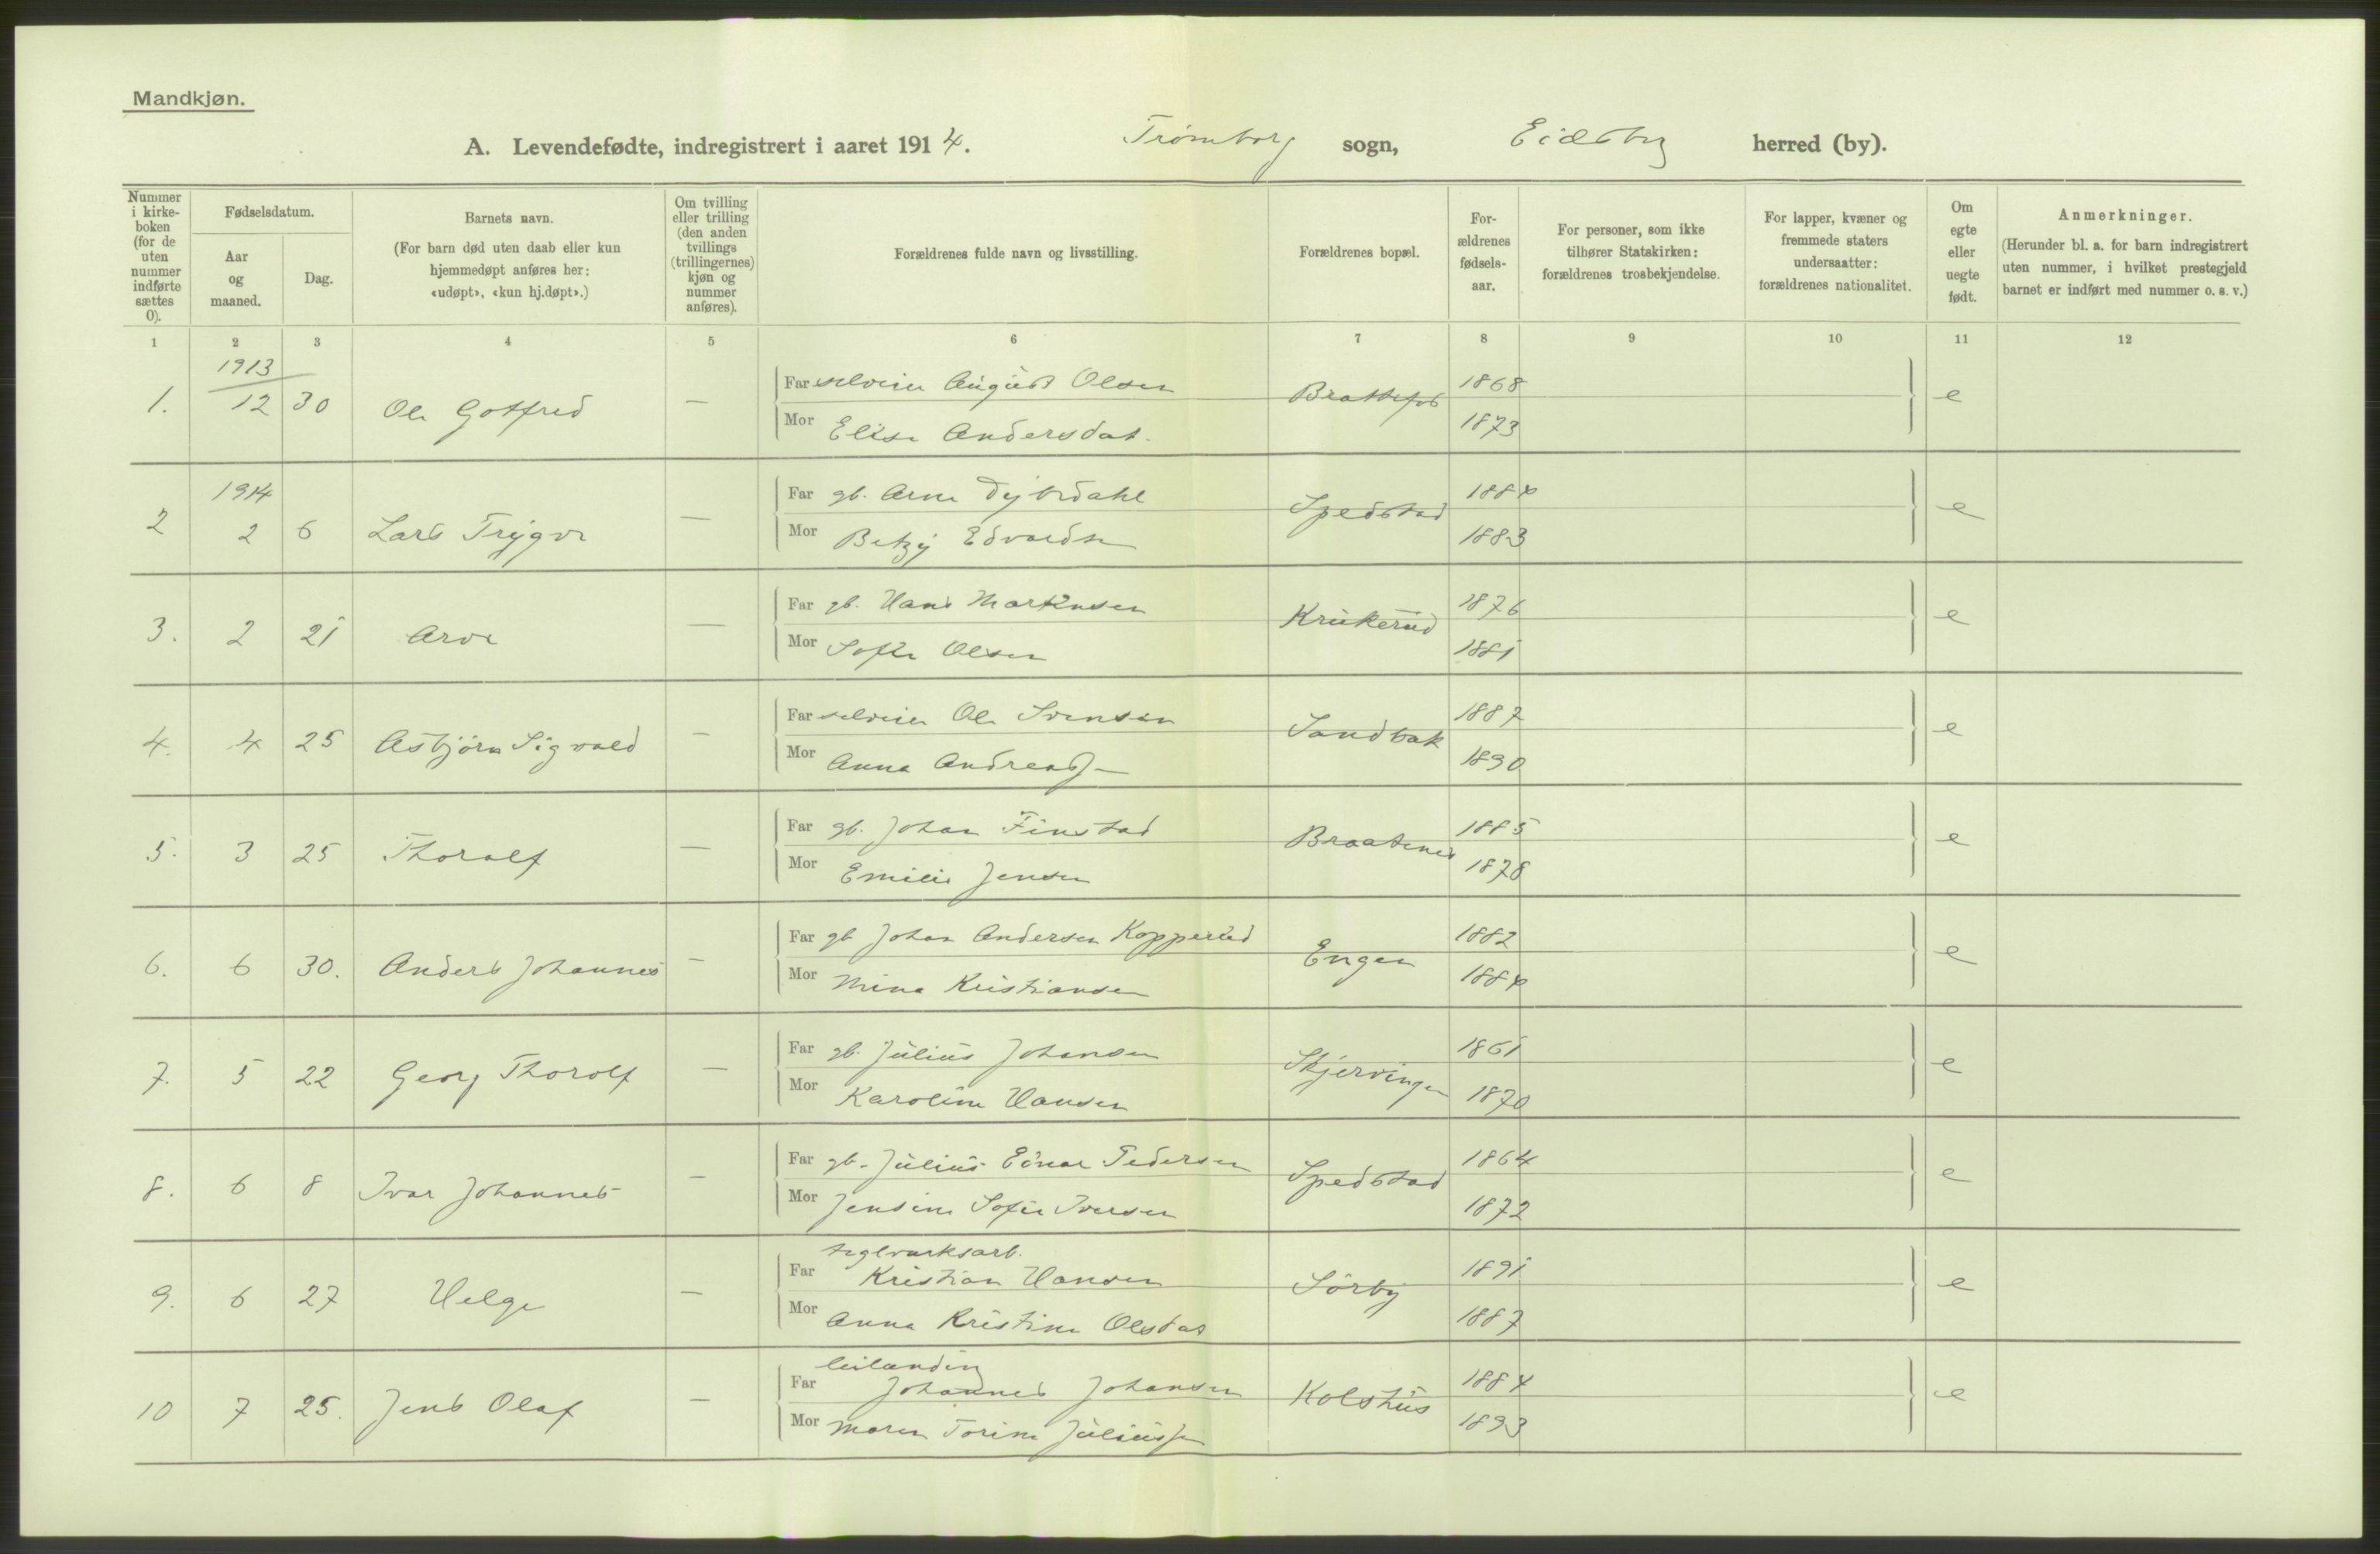 Mandkjøn.
A. Levendefødte, indregistrert i aaret 1914. Trømborg sogn, Eidsberg herred (by).
Nummer i kirke-boken (for de uten nummer indførte sættes 0).
Fødselsdatum.
Aar og maaned.
Dag.
Barnets navn.
(For barn død uten daab eller kun hjemmedøpt anføres her: «udøpt», «kun hj.døpt».)
Om tvilling eller trilling (den anden tvillings (trillingernes) kjøn og nummer anføres).
Forældrenes fulde navn og livsstilling.
Forældrenes bopæl.
For-ældrenes fødsels-aar.
For personer, som ikke tilhører Statskirken: forældrenes trosbekjendelse.
For lapper, kvæner og fremmede staters undersaatter: forældrenes nationalitet.
Om egte eller uegte født.
Anmerkninger.
(Herunder bl. a. for barn indregistrert uten nummer, i hvilket prestegjeld barnet er indført med nummer o. s. v.)
1 2 3 4 5 6 7 8 9 10 11 12
1913
1. 12 30 Ole Gotfred — Far selveier August Olsen Brattefos 1868 e
Mor Elise Andersdat. 1873
1914
2 2 6 Lars Trygve — Far gb. Arne Dybedahl Spedstad 1884 e
Mor Betzy Edvardsen 1883
3. 2 21 Arve — Far gb. Hans Martinsen Krukerud 1876 e
Mor Sofie Olsen 1881
4. 4 25 Asbjørn Sigvald — Far selveier Ole Svensen Sandbæk 1887 e
Mor Anna Andreass 1890
5. 3 25 Thoralf — Far gb. Johan Finstad Braatenes 1885 e
Mor Emilie Jensen 1878
6. 6 30. Anders Johannes — Far gb Johan Andersen Kopperud Engen 1882 e
Mor Mina Kristiansen 1884
7. 5 22 Georg Thorolf — Far gb. Julius Johansen Skjervingen 1861 e
Mor Karoline Hansen 1870
8. 6 8 Ivar Johannes — Far gb. Julius Einar Pedersen Spedstad 1864 e
Mor Jensine Sofie Iversen 1872
teglverksarb.
9. 6 27 Helge — Far Kristian Hansen Sørby 1891 e
Mor Anna Kristine Olsdat 1887
leilænding
10 7 25. Jens Olaf — Far Johannes Johansen Kolshus 1884 e
Mor Maren Torine Juliuss 1893